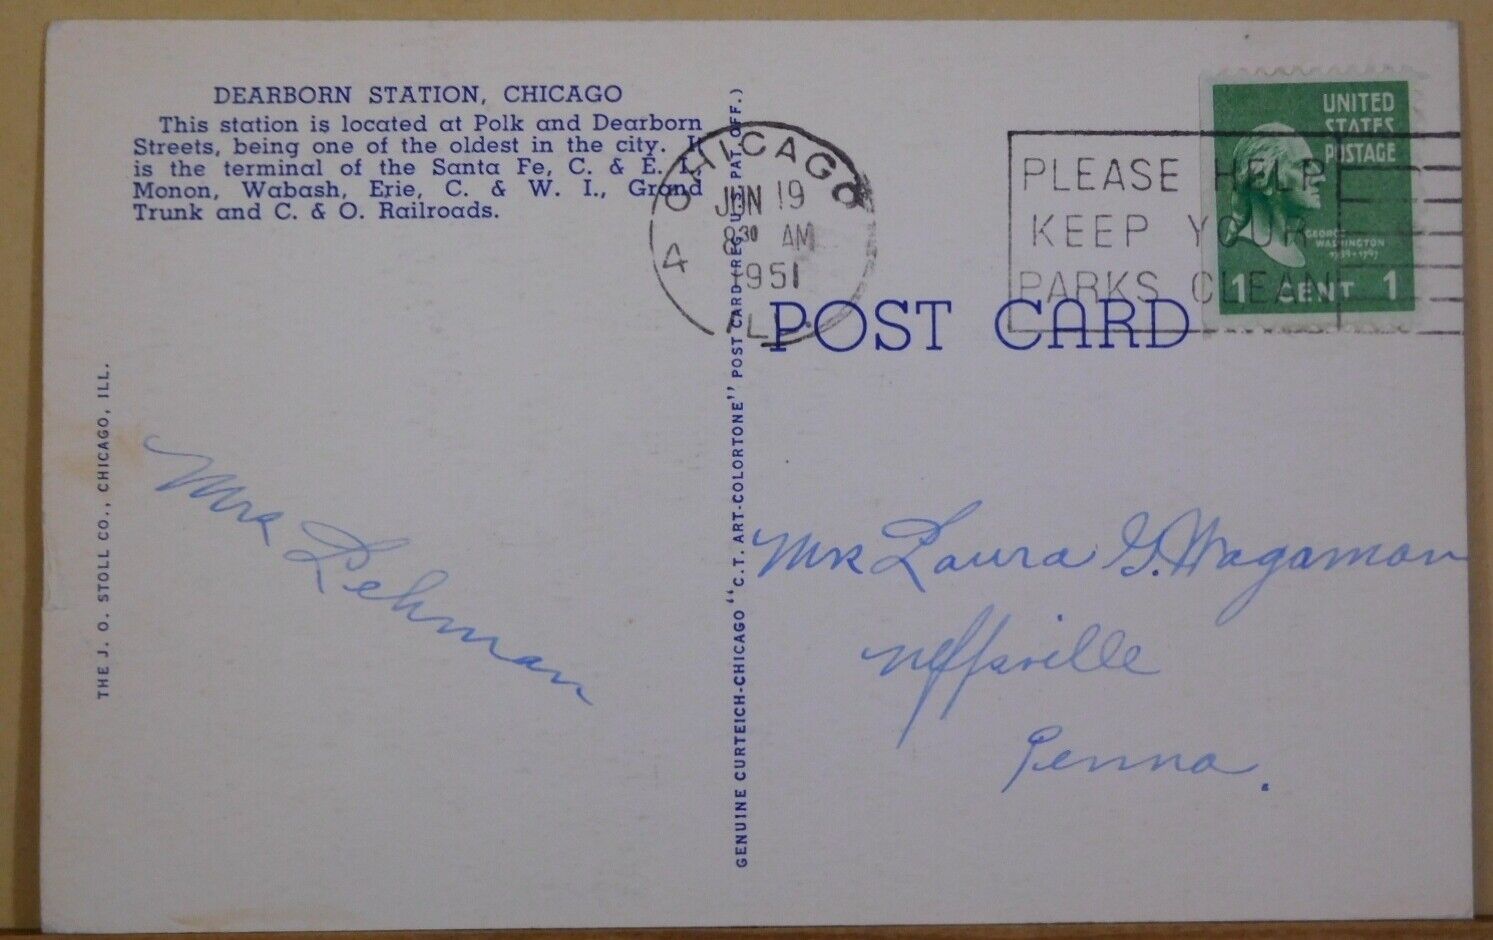 DEARBORN STATION, CHICAGO
This station is located at Polk and Dearborn
Streets, being one of the oldest in the city. It
is the terminal of the Santa Fe, C. & E. I.,
Monon, Wabash, Erie, C. & W. I., Grand
Trunk and C. & O. Railroads.
THE J. O. STOLL CO., CHICAGO, ILL.
Mrs Lehman
GENUINE CURTEICH-CHICAGO "C.T. ART-COLORTONE" POST CARD (REG. U.S. PAT. OFF.)
CHICAGO
4
JUN 19
8 30 AM
1951
ILL.
PLEASE HELP
KEEP YOUR
PARKS CLEAN
UNITED
STATES
POSTAGE
GEORGE
WASHINGTON
1789-1797
1 CENT 1
POST CARD
Mrs Laura G. Wagaman
Neffsville
Penna.